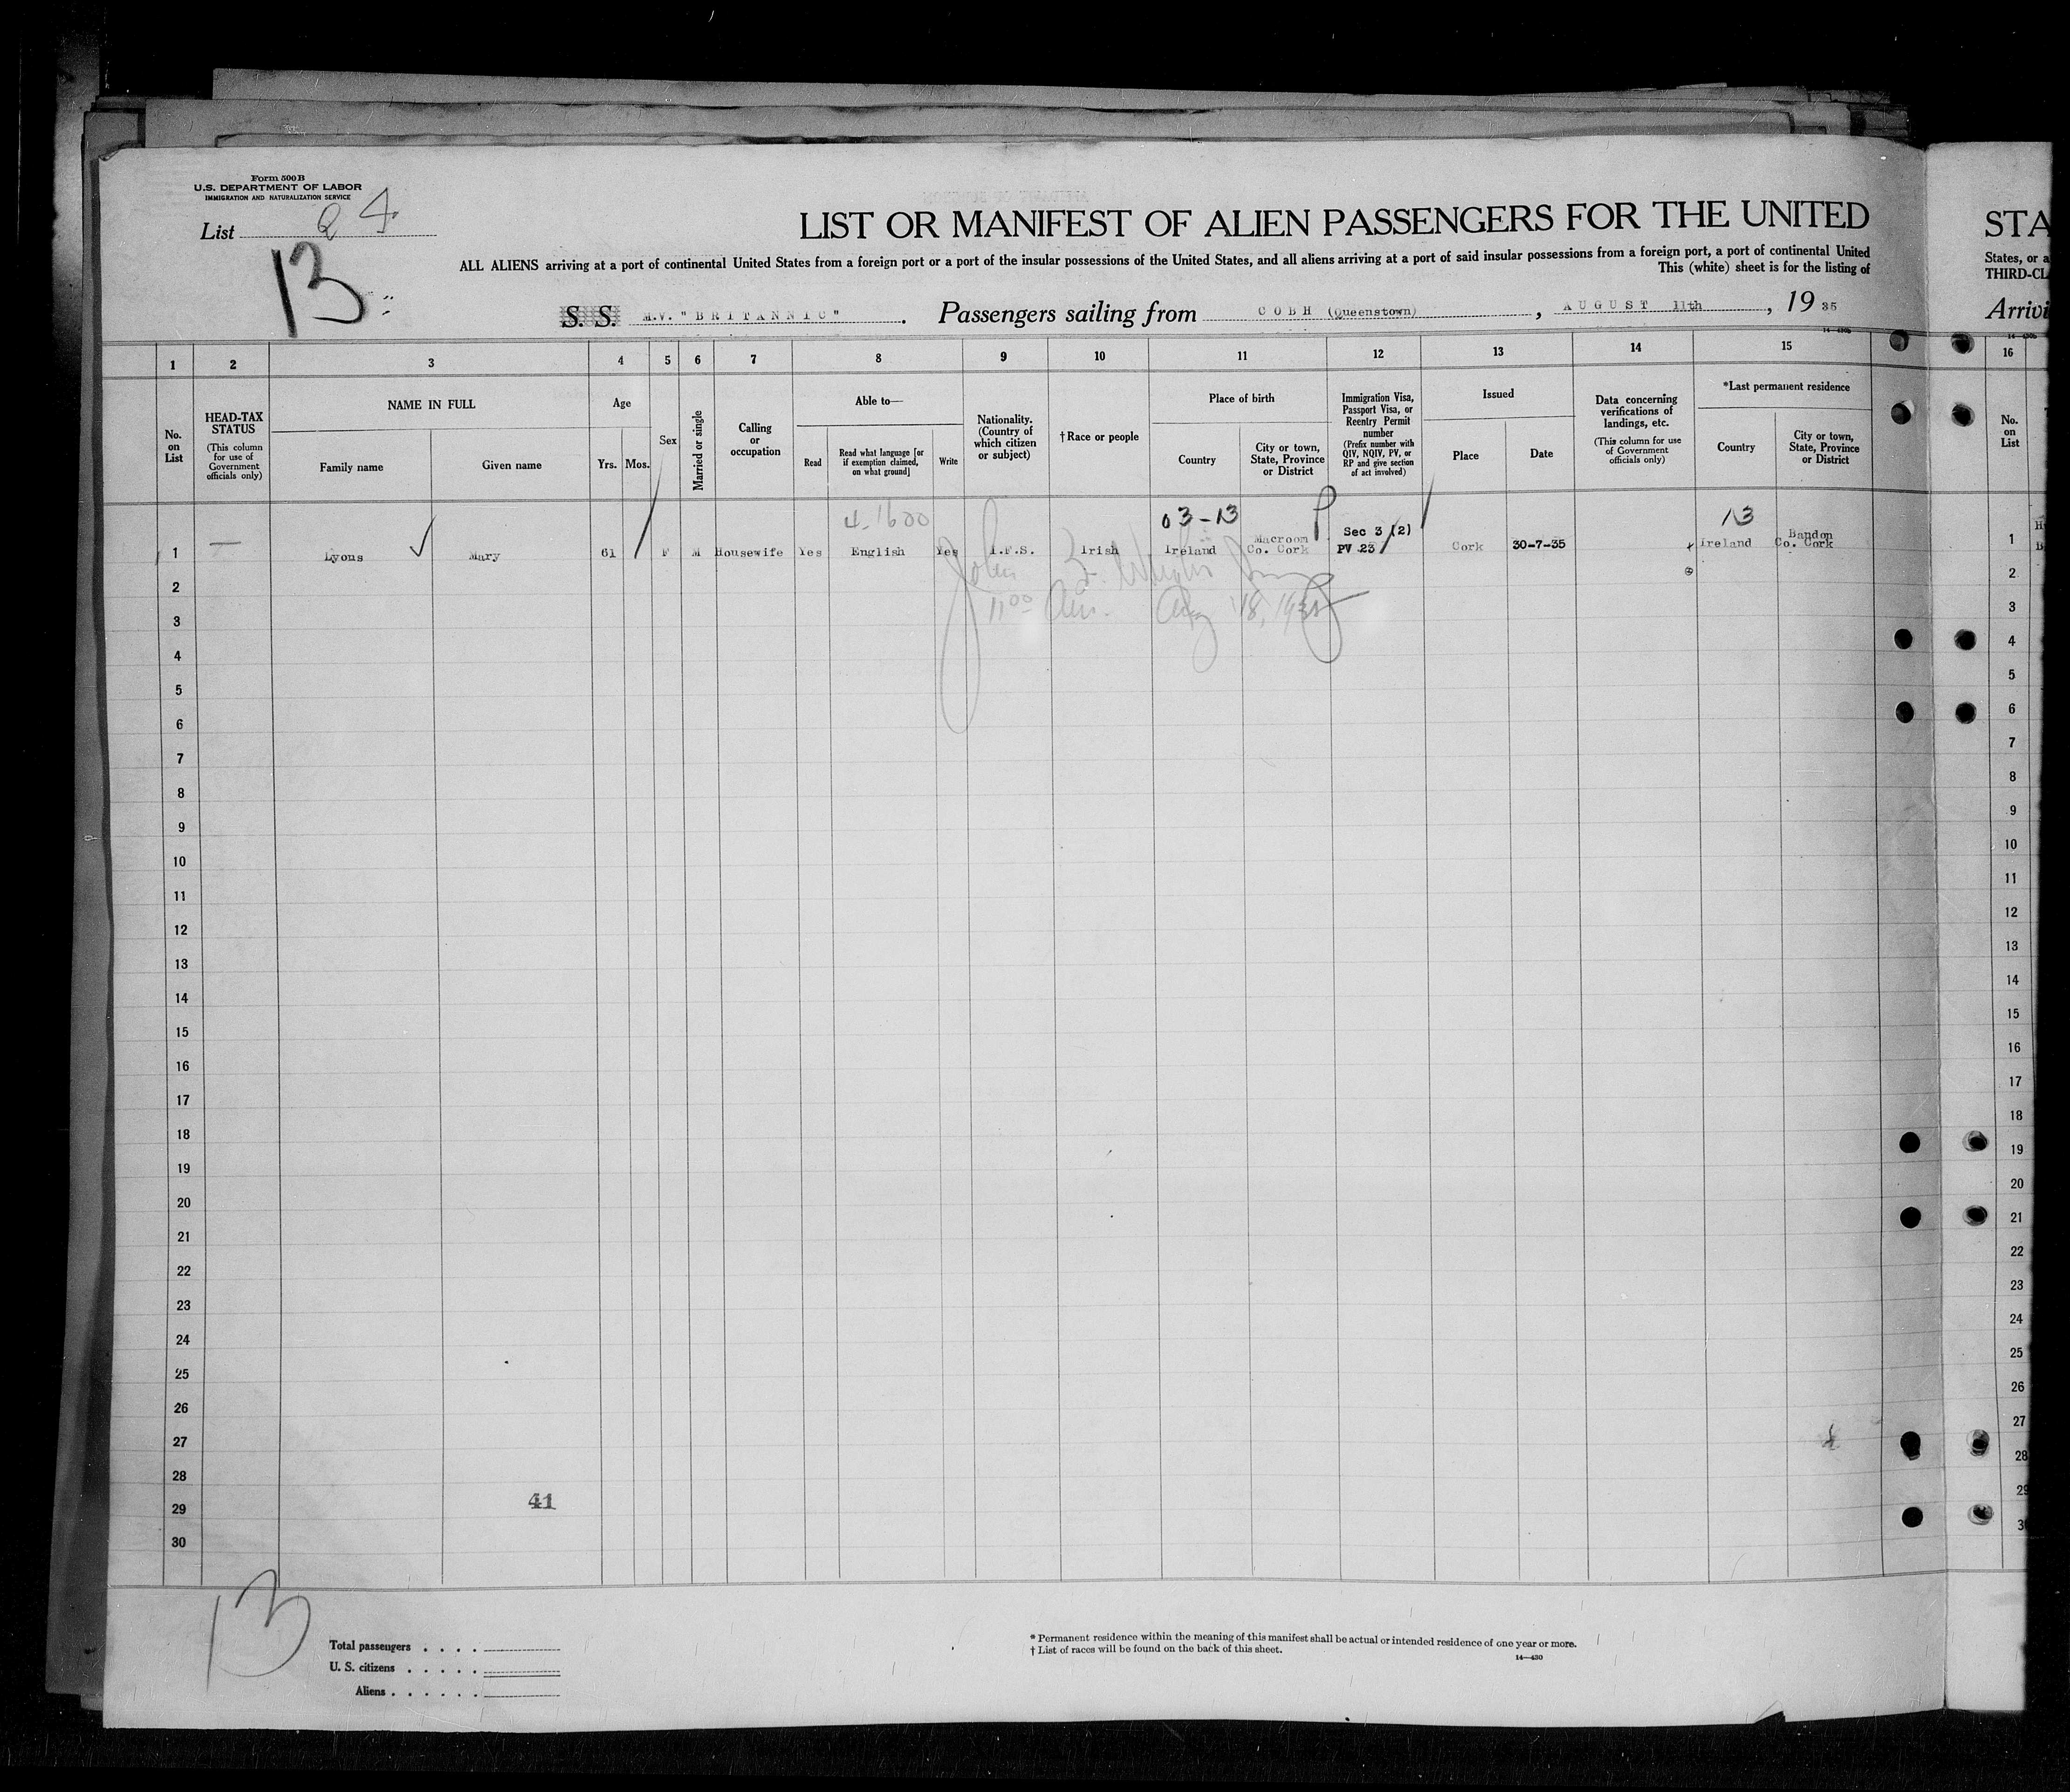 Form 500 B
U.S. DEPARTMENT OF LABOR
IMMIGRATION AND NATURALIZATION SERVICE
List 24
13
LIST OR MANIFEST OF ALIEN PASSENGERS FOR THE UNITED
ALL ALIENS arriving at a port of continental United States from a foreign port or a port of the insular possessions of the United States, and all aliens arriving at a port of said insular possessions from a foreign port, a port of continental United
This (white) sheet is for the listing of
S. S. M.V. "BRITANNIC". Passengers sailing from COBH (Queenstown), AUGUST 11th, 19 35
14—430b
1 2 3 4 5 6 7 8 9 10 11 12 13 14 15
No. on List
HEAD-TAX STATUS
(This column for use of Government officials only)
NAME IN FULL
Family name
Given name
Age
Yrs.
Mos.
Sex
Married or single
Calling or occupation
Able to—
Read
Read what language [or if exemption claimed, on what ground]
Write
Nationality. (Country of which citizen or subject)
†Race or people
Place of birth
Country
City or town, State, Province or District
Immigration Visa, Passport Visa, or Reentry Permit number
(Prefix number with QIV, NQIV, PV, or RP and give section of act involved)
Issued
Place
Date
Data concerning verifications of landings, etc.
(This column for use of Government officials only)
*Last permanent residence
Country
City or town, State, Province or District
4-1600 03-13 P 13
1 — Lyons ✓ Mary 61 F M Housewife Yes English Yes I.F.S. Irish Ireland Macroom Co. Cork Sec 3 (2) PV 23 Cork 30-7-35 Ireland Bandon Co. Cork
John
11 00 Am. Aug 18, 1935
2
3
4
5
6
7
8
9
10
11
12
13
14
15
16
17
18
19
20
21
22
23
24
25
26
27
28
29 41
30
13
Total passengers . . . .
U. S. citizens . . . . .
Aliens . . . . . .
* Permanent residence within the meaning of this manifest shall be actual or intended residence of one year or more.
† List of races will be found on the back of this sheet.
14—430
STA
States, or a
THIRD-CL
Arrivi
16
No. on List
1
2
3
4
5
6
7
8
9
10
11
12
13
14
15
16
17
18
19
20
21
22
23
24
25
26
27
28
29